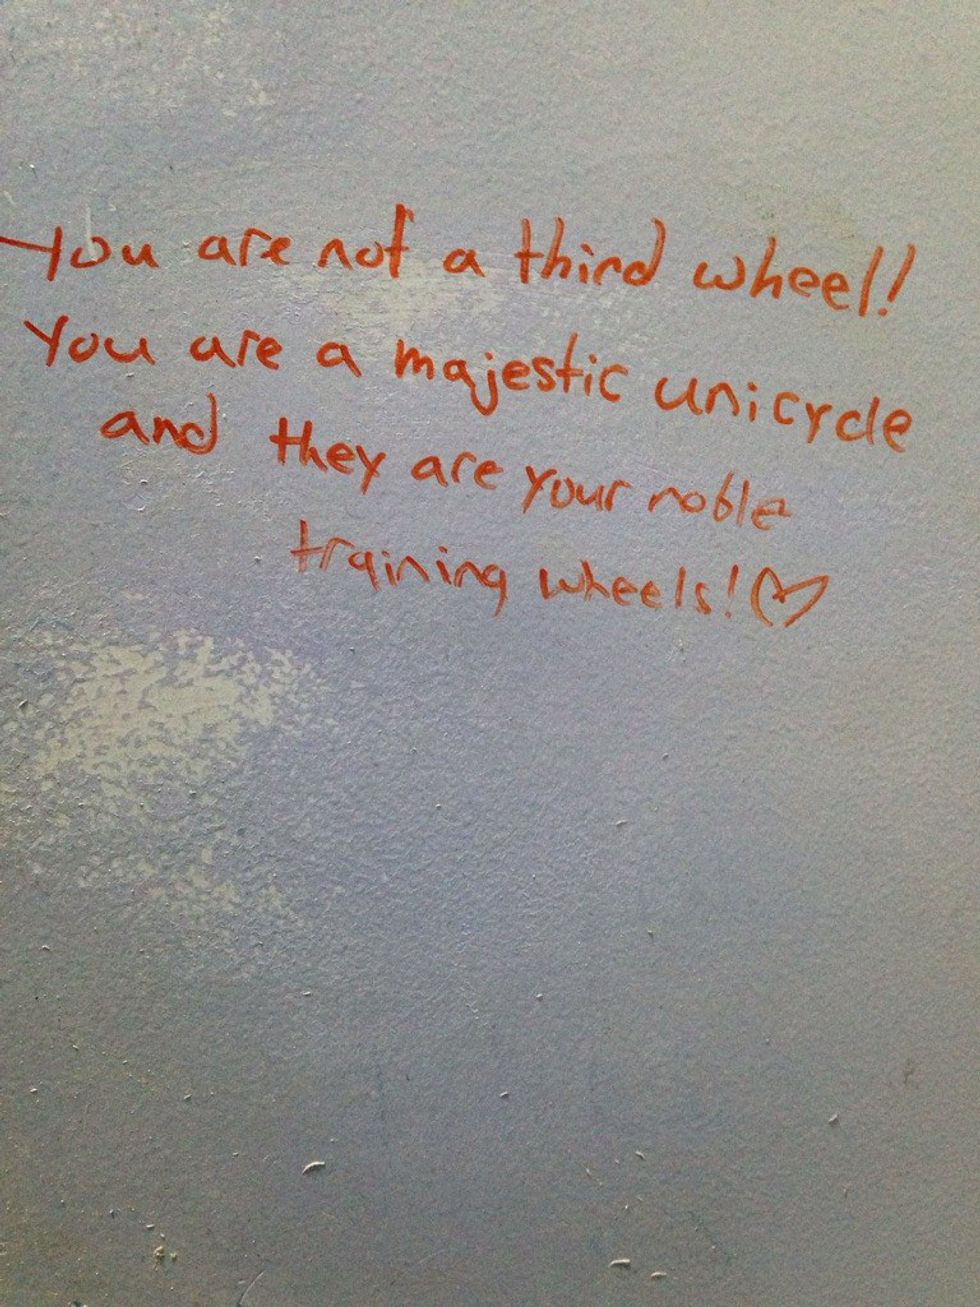 You are not a third wheel!
You are a majestic unicycle
and they are your noble
training wheels! ♡